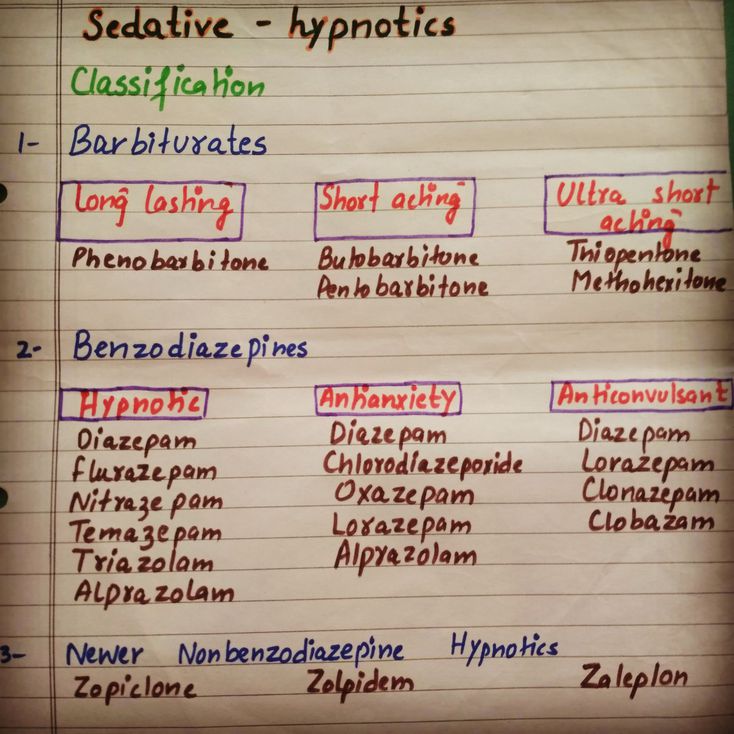 Sedative - hypnotics
Classification
1- Barbiturates
Long lasting Short acting Ultra short
acting
Phenobarbitone Butobarbitone Thiopentone
Pentobarbitone Methohexitone
2- Benzodiazepines
Hypnotic Antianxiety Anticonvulsant
Diazepam Diazepam Diazepam
Flurazepam Chlorodiazepoxide Lorazepam
Nitrazepam Oxazepam Clonazepam
Temazepam Lorazepam Clobazam
Triazolam Alprazolam
Alprazolam
3- Newer Nonbenzodiazepine Hypnotics
Zopiclone Zolpidem Zaleplon